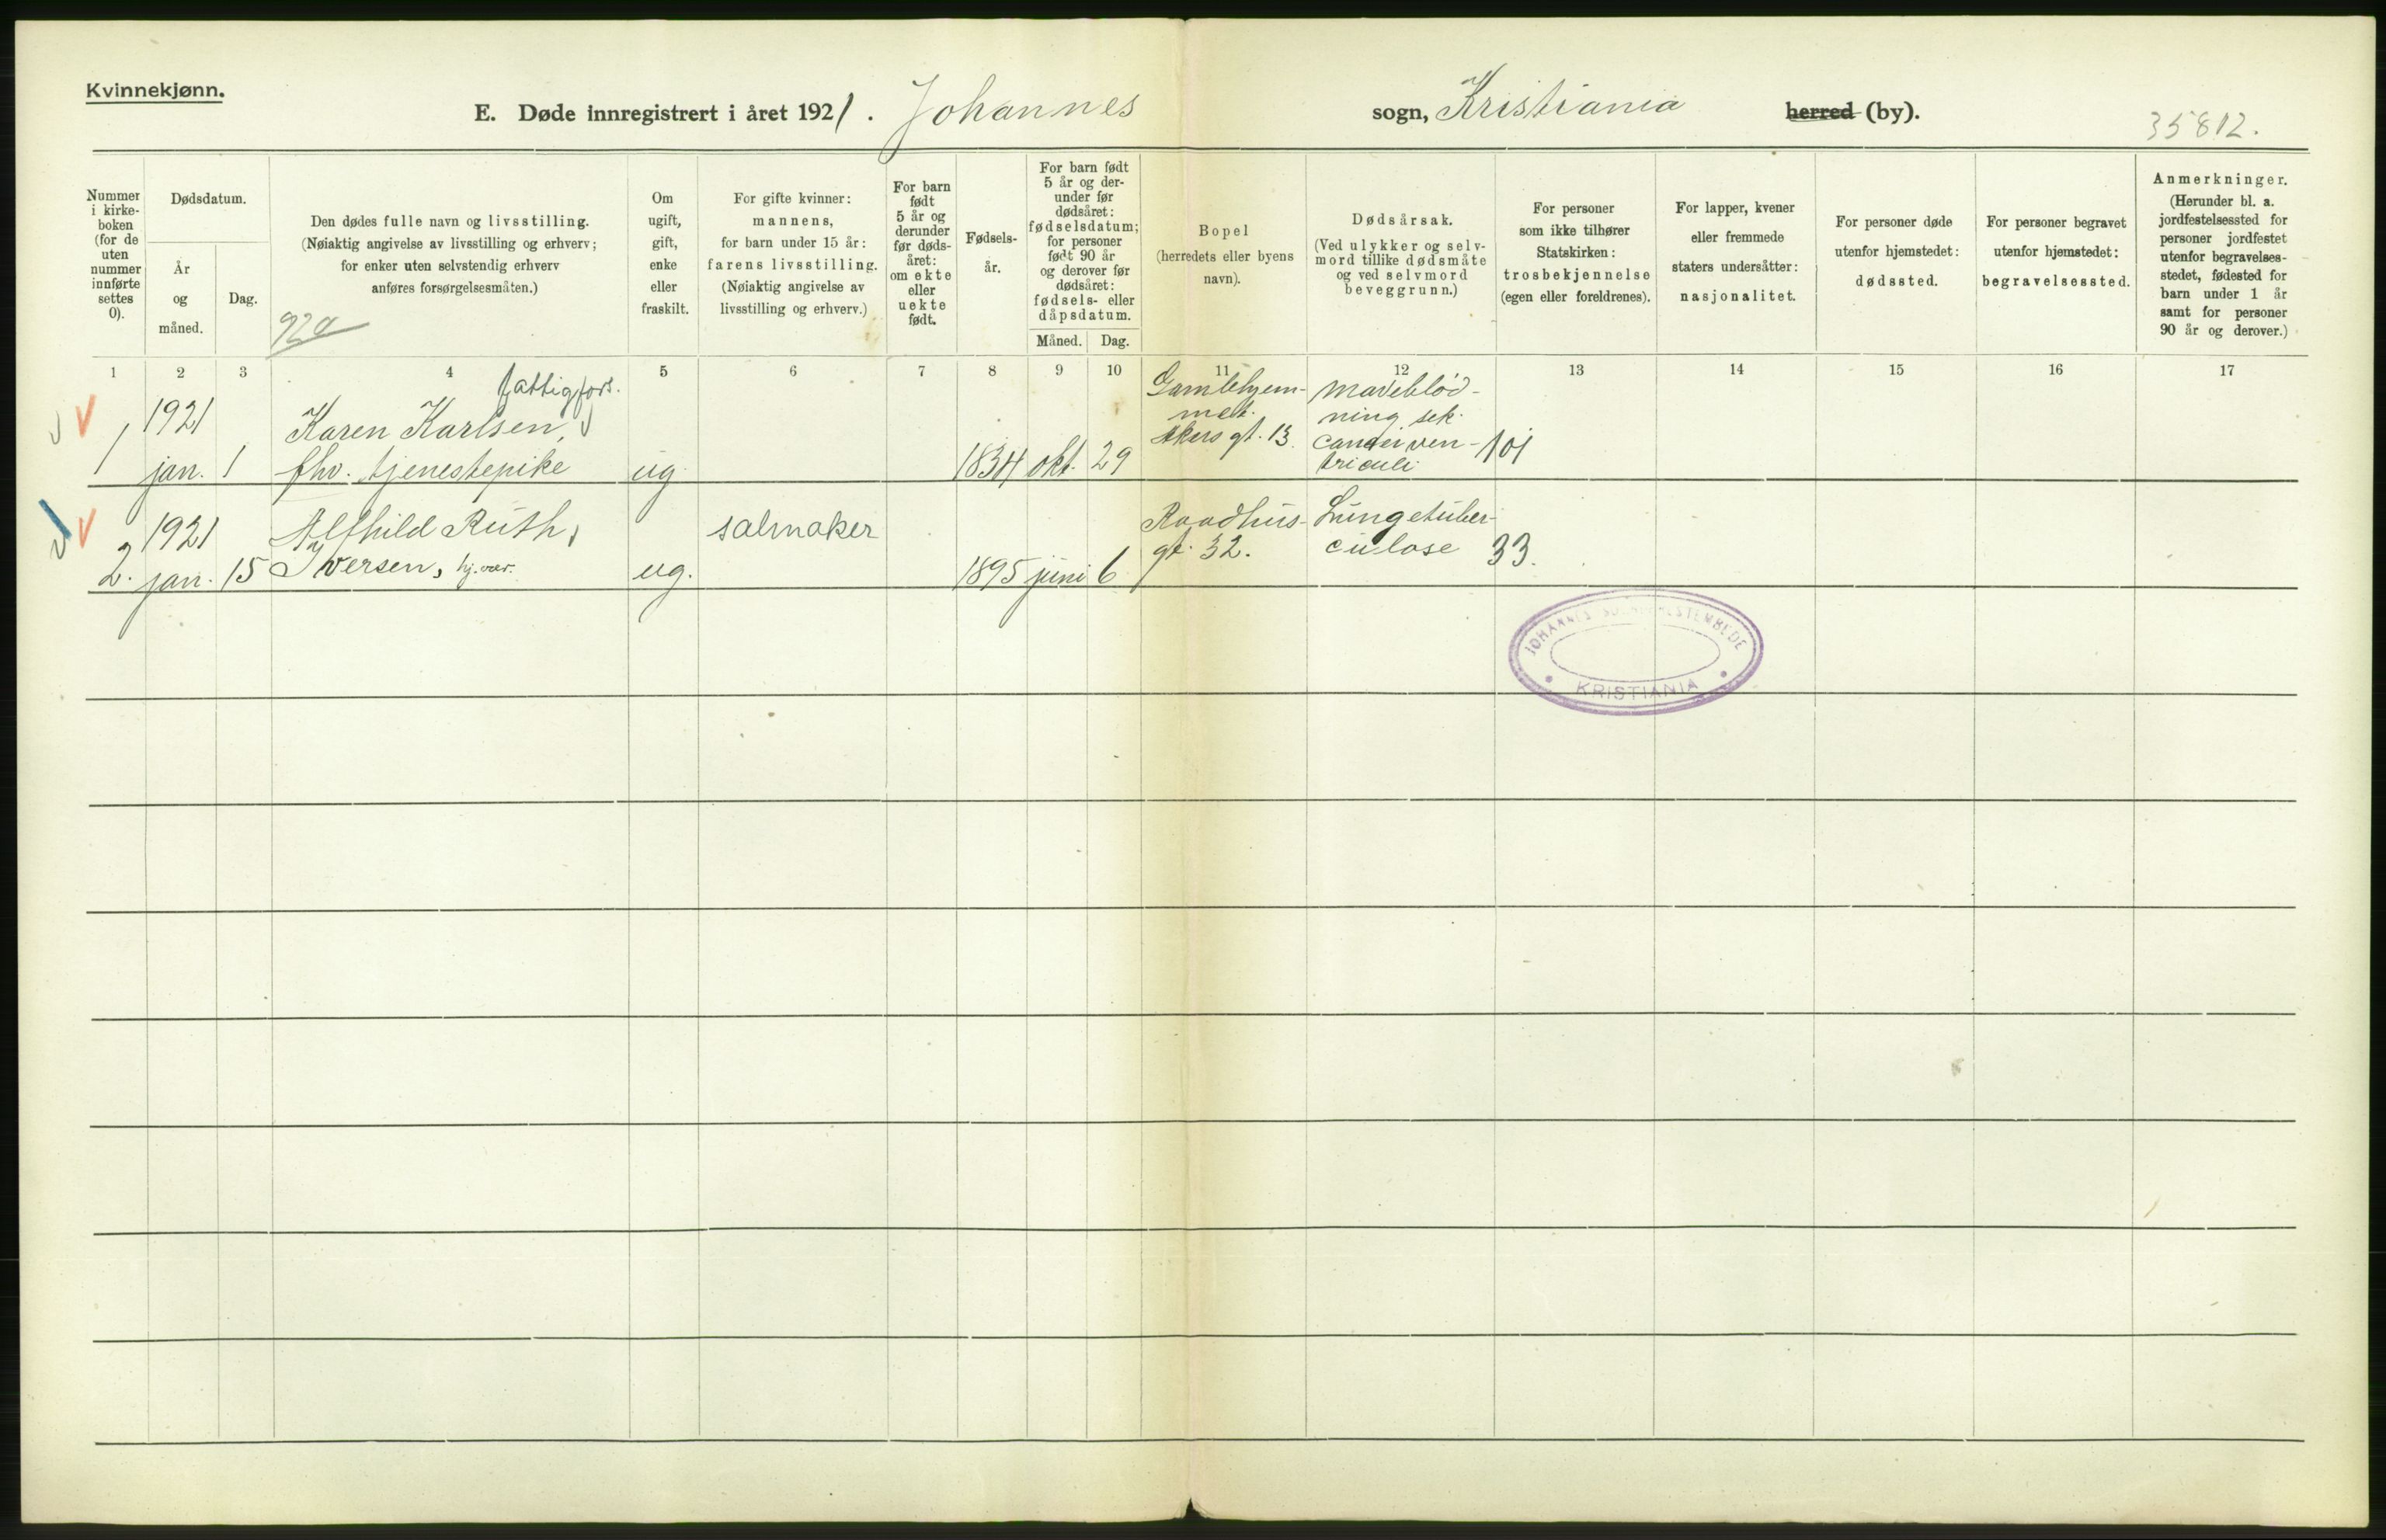 Kvinnekjønn.
E. Døde innregistrert i året 1921. Johannes sogn, Kristiania herred (by).
35812.
Nummer
i kirke-
boken
(for de
uten
nummer
innførte
settes
0).
Dødsdatum.
År
og
måned.
Dag.
Den dødes fulle navn og livsstilling.
(Nøiaktig angivelse av livsstilling og erhverv;
for enker uten selvstendig erhverv
anføres forsørgelsesmåten.)
Om
ugift,
gift,
enke
eller
fraskilt.
For gifte kvinner:
mannens,
for barn under 15 år:
farens livsstilling.
(Nøiaktig angivelse av
livsstilling og erhverv.)
For barn
født
5 år og
derunder
før døds-
året:
om ekte
eller
uekte
født.
Fødsels-
år.
For barn født
5 år og der-
under før
dødsåret:
fødselsdatum;
for personer
født 90 år
og derover før
dødsåret:
fødsels- eller
dåpsdatum.
Måned. Dag.
Bopel
(herredets eller byens
navn).
Dødsårsak.
(Ved ulykker og selv-
mord tillike dødsmåte
og ved selvmord
beveggrunn.)
For personer
som ikke tilhører
Statskirken:
trosbekjennelse
(egen eller foreldrenes).
For lapper, kvener
eller fremmede
staters undersåtter:
nasjonalitet.
For personer døde
utenfor hjemstedet:
dødssted.
For personer begravet
utenfor hjemstedet:
begravelsessted.
Anmerkninger.
(Herunder bl. a.
jordfestelsessted for
personer jordfestet
utenfor begravelses-
stedet, fødested for
barn under 1 år
samt for personer
90 år og derover.)
1 2 3 4 5 6 7 8 9 10 11 12 13 14 15 16 17
fattigfors.
1
1921
jan. 1
Karen Karlsen,
fhv. tjenestepike
ug.
1834 okt. 29
Gamlehjem-
met.
Akers gt. 13.
Maveblød-
ning sek.
cancer ven-
triculi
101
2.
1921
jan. 15
Alfhild Ruth,
Iversen, hj.vær.
ug.
salmaker
1895 juni 6
Raadhus-
gt. 32.
Lungetuber-
culose
33.
JOHANNES SOGNEPRESTEMBEDE
KRISTIANIA